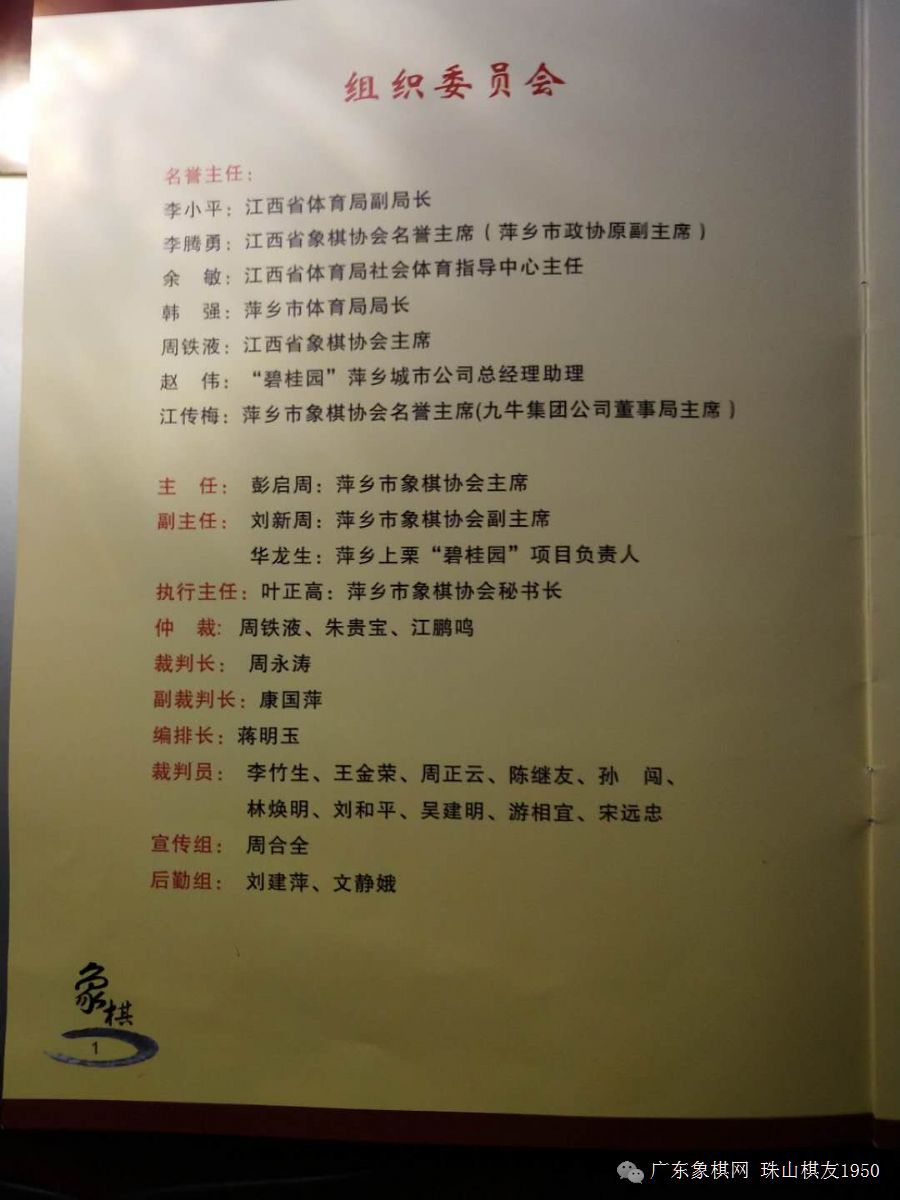 组织委员会
名誉主任：
李小平：江西省体育局副局长
李腾勇：江西省象棋协会名誉主席（萍乡市政协原副主席）
余　敏：江西省体育局社会体育指导中心主任
韩　强：萍乡市体育局局长
周铁液：江西省象棋协会主席
赵　伟：“碧桂园”萍乡城市公司总经理助理
江传梅：萍乡市象棋协会名誉主席(九牛集团公司董事局主席）
主　任：彭启周：萍乡市象棋协会主席
副主任：刘新周：萍乡市象棋协会副主席
华龙生：萍乡上栗“碧桂园”项目负责人
执行主任：叶正高：萍乡市象棋协会秘书长
仲　裁：周铁液、朱贵宝、江鹏鸣
裁判长：周永涛
副裁判长：康国萍
编排长：蒋明玉
裁判员：李竹生、王金荣、周正云、陈继友、孙　闯、
林焕明、刘和平、吴建明、游相宜、宋远忠
宣传组：周合全
后勤组：刘建萍、文静娥
象棋
1
广东象棋网 珠山棋友1950